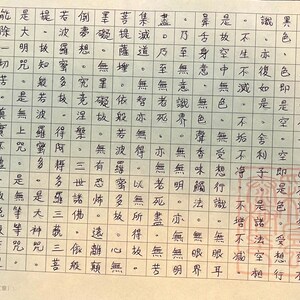 異色。色即是空。空即是色。受想行
識。亦復如是。舍利子。是諸法空相
。不生不滅。不垢不淨。不增不減。
是故空中無色。無受想行識。無眼耳
鼻舌身意。無色聲香味觸法。無眼界
。乃至無意識界。無無明。亦無無明
盡。乃至無老死。亦無老死盡。無苦
集滅道。無智亦無得。以無所得故。
菩提薩埵。依般若波羅蜜多故。心無
罣礙。無罣礙故。無有恐怖。遠離顛
倒夢想。究竟涅槃。三世諸佛。依般
若波羅蜜多故。得阿耨多羅三藐三菩
提。故知般若波羅蜜多。是大神咒。
是大明咒。是無上咒。是無等等咒。
能除一切苦。真實不虛